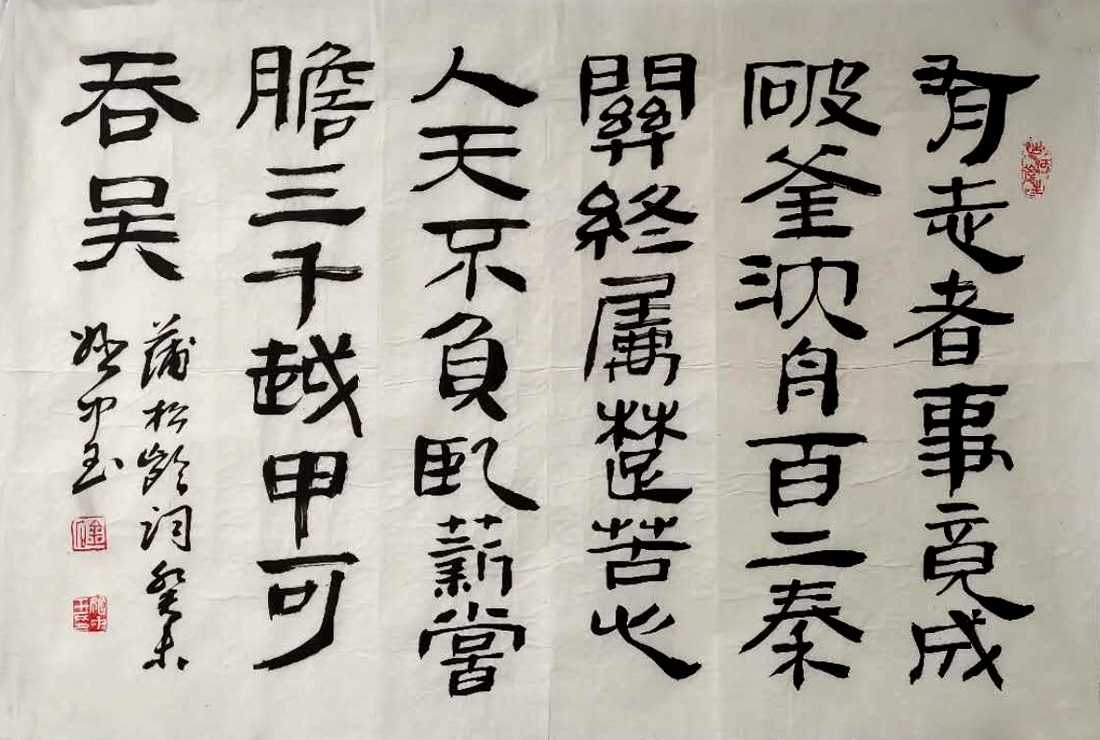 有志者事竟成
破釜沈舟百二秦
關終属楚苦心
人天不負臥薪嘗
膽三千越甲可
吞吴
蒲松齡詞癸未
姚中玉